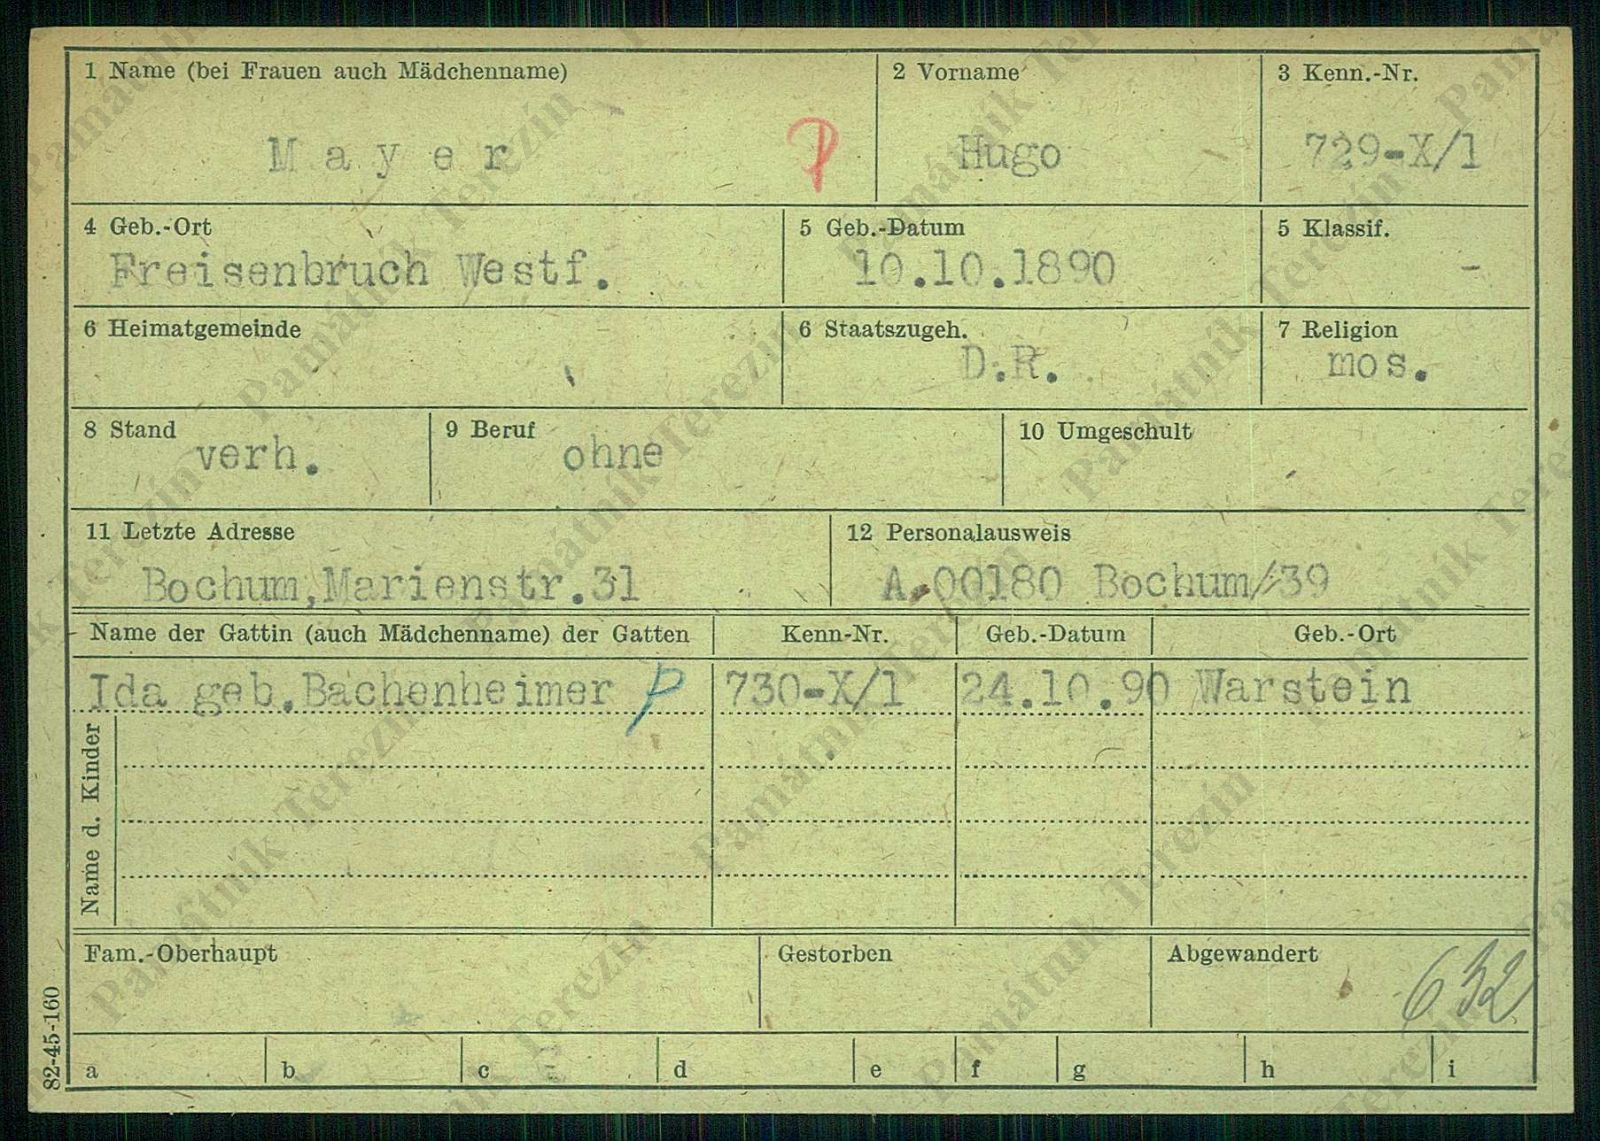 1 Name (bei Frauen auch Mädchenname)
Mayer
P
2 Vorname
Hugo
3 Kenn.-Nr.
729-X/1
4 Geb.-Ort
Freisenbruch Westf.
5 Geb.-Datum
10.10.1890
5 Klassif.
-
6 Heimatgemeinde
6 Staatszugeh.
D.R.
7 Religion
mos.
8 Stand
verh.
9 Beruf
ohne
10 Umgeschult
11 Letzte Adresse
Bochum,Marienstr.31
12 Personalausweis
A.00180 Bochum/39
Name der Gattin (auch Mädchenname) der Gatten
Kenn-Nr.
Geb.-Datum
Geb.-Ort
Ida geb.Bachenheimer P 730-X/1 24.10.90 Warstein
Name d. Kinder
Fam.-Oberhaupt
Gestorben
Abgewandert
632
a b c d e f g h i
82-45-160
Památník Terezín